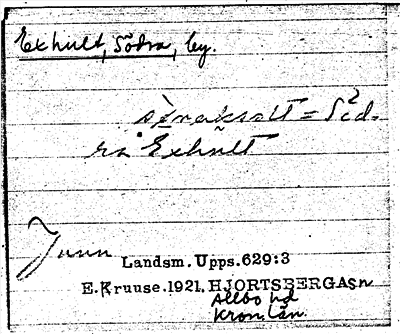 Exhult, Södra, by.
= Söd-
ra Exhult
Landsm. Upps. 629:3
E. Kruuse. 1921. HJORTSBERGA sn
Allbo hd
Kron. län.